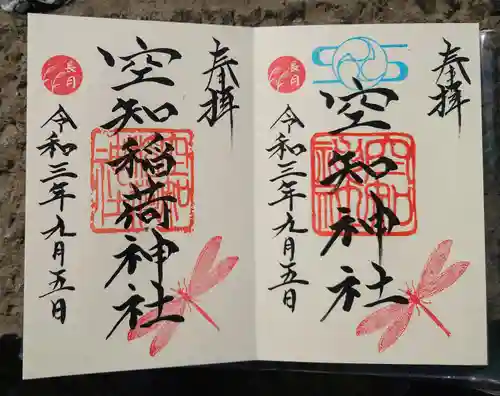 奉拝
空知神社
長月
令和三年九月五日
奉拝
空知稲荷神社
長月
令和三年九月五日